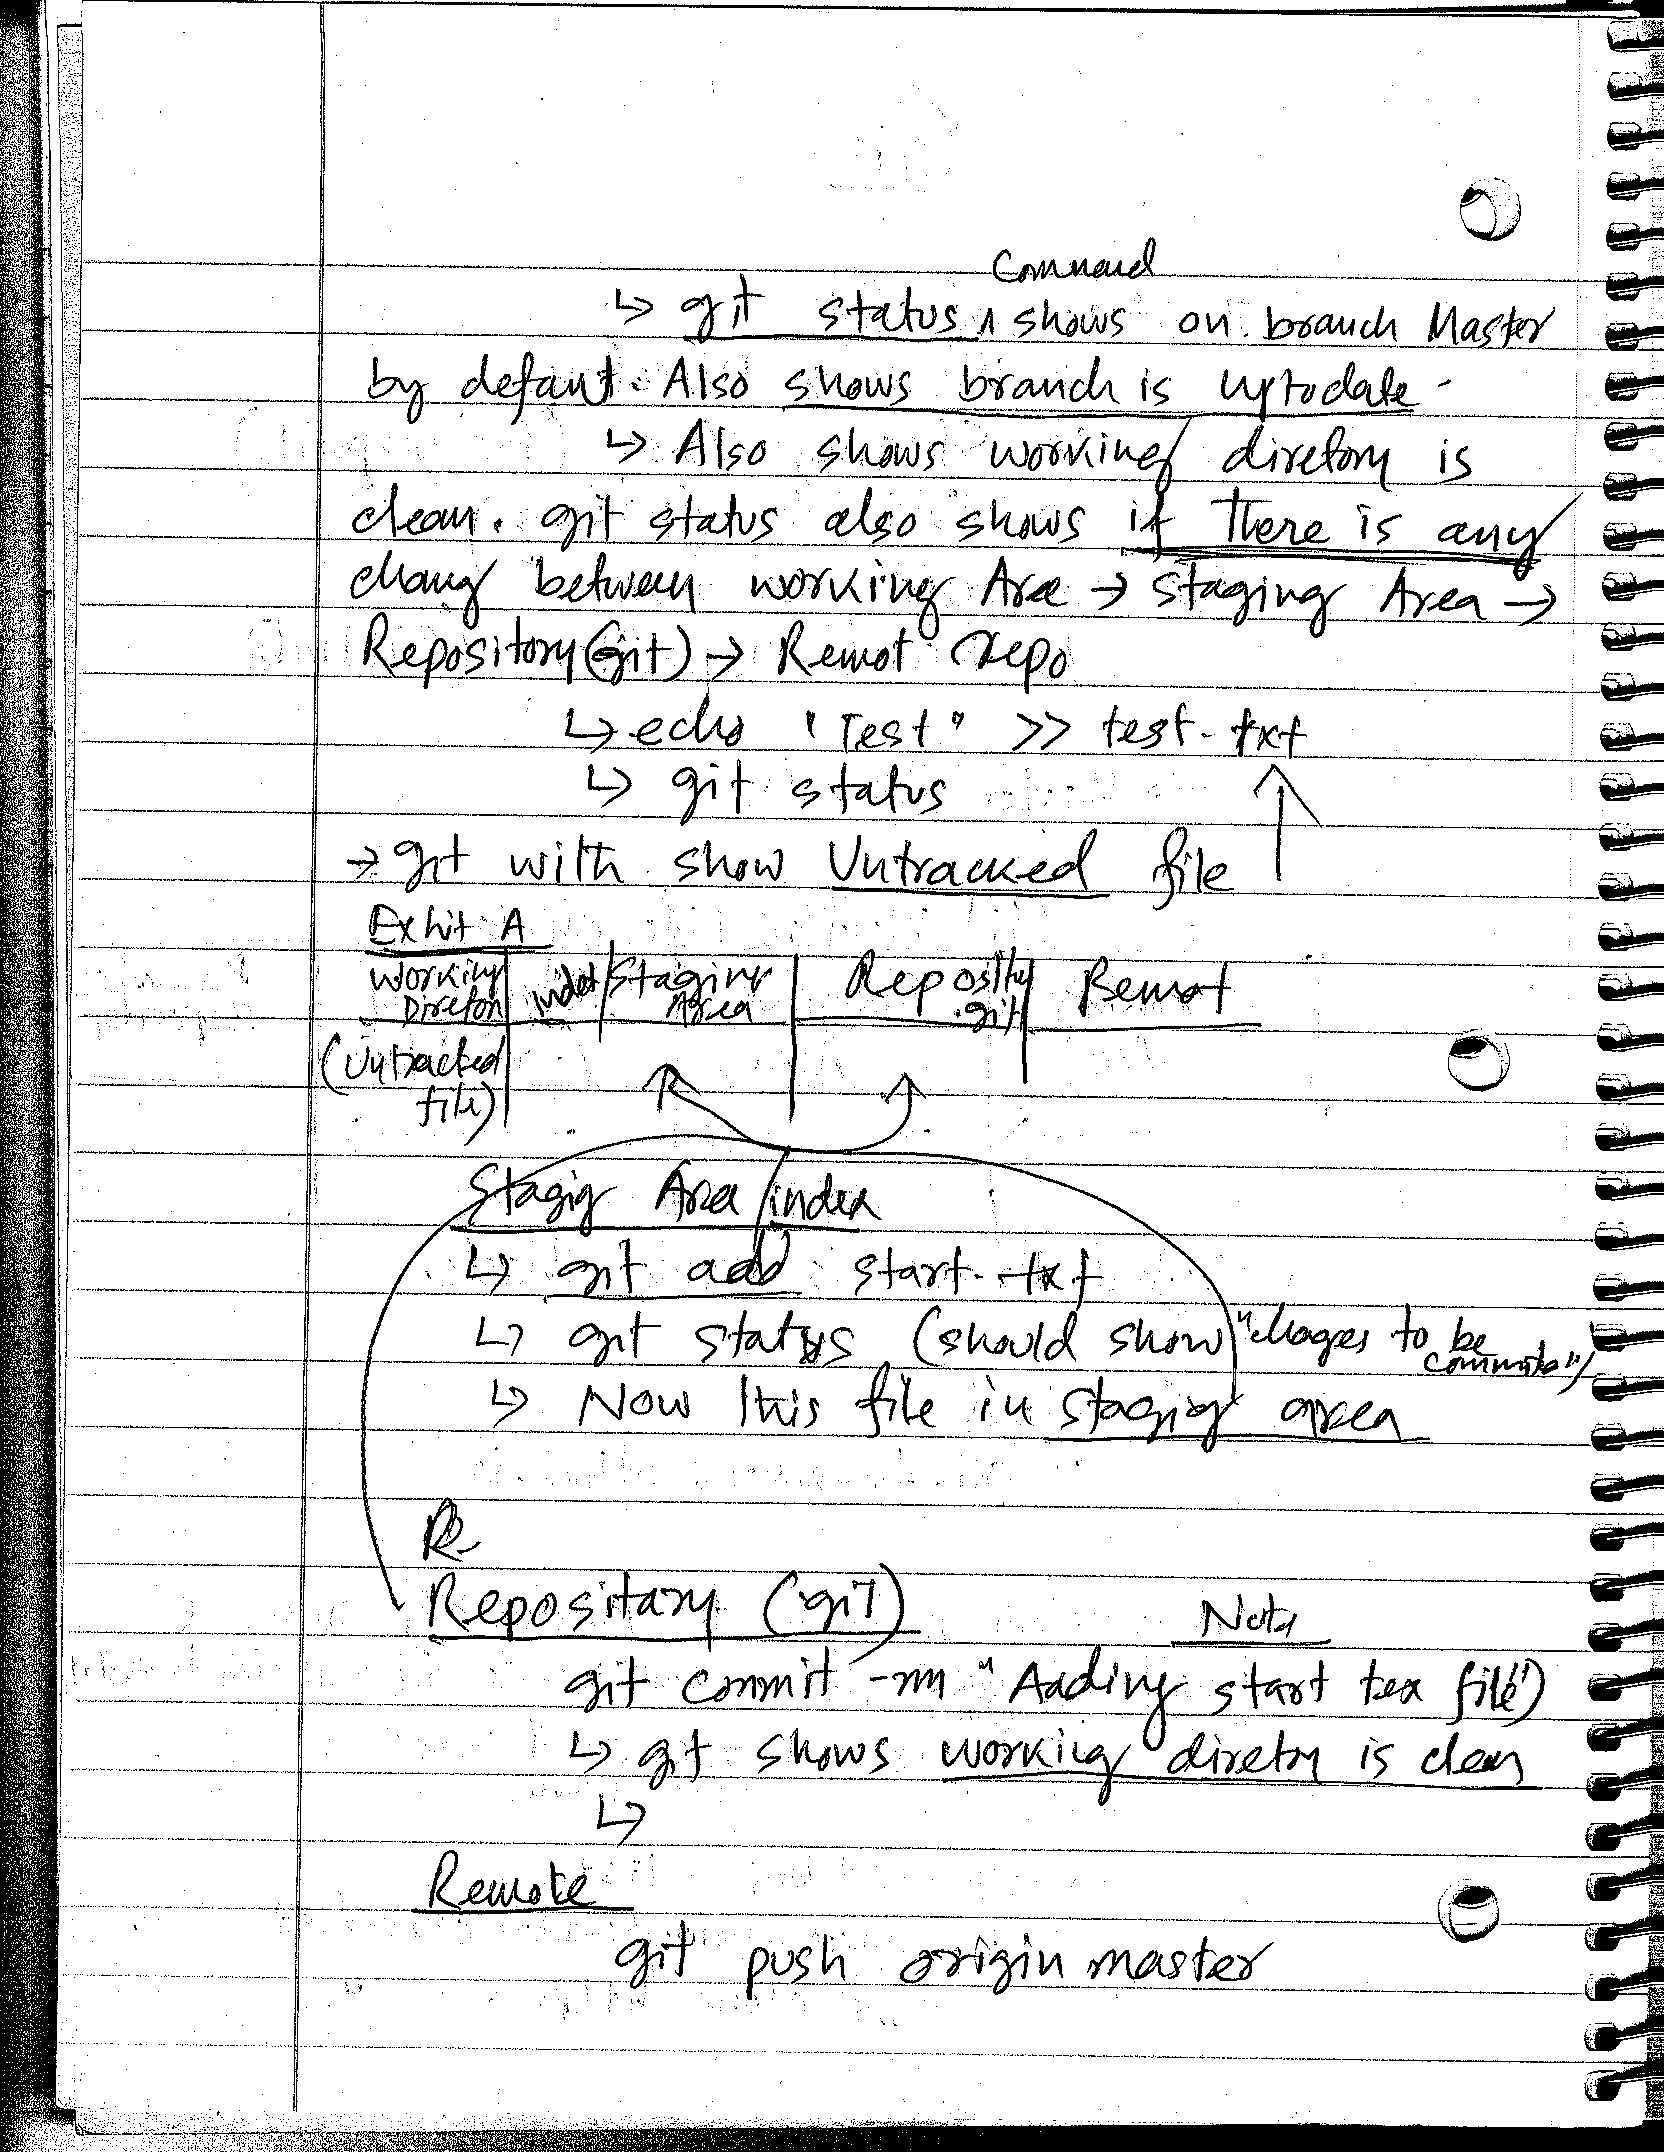 Command
↳ git status ∧ shows on branch Master
by defaut. Also shows branch is uptodate.
↳ Also shows working diretory is
clean. git status also shows if There is any
chang between working Area → Staging Area →
Repository (git) → Remot Repo
↳ echo "Test" >> test.txt
↳ git status
→ git with show Untracked file
Exhit A
Working Direton | Index/Staging Area | Reposity .git | Remot
(Untracked file)
Stagig Area/index
↳ git add start.txt
↳ git status (should show "chages to be commite")
↳ Now this file in stagig area
R
Repositary (.git)
Note
git commit -m "Aadding start tex file")
↳ git shows working diretry is clean
↳
Remote
git push origin master